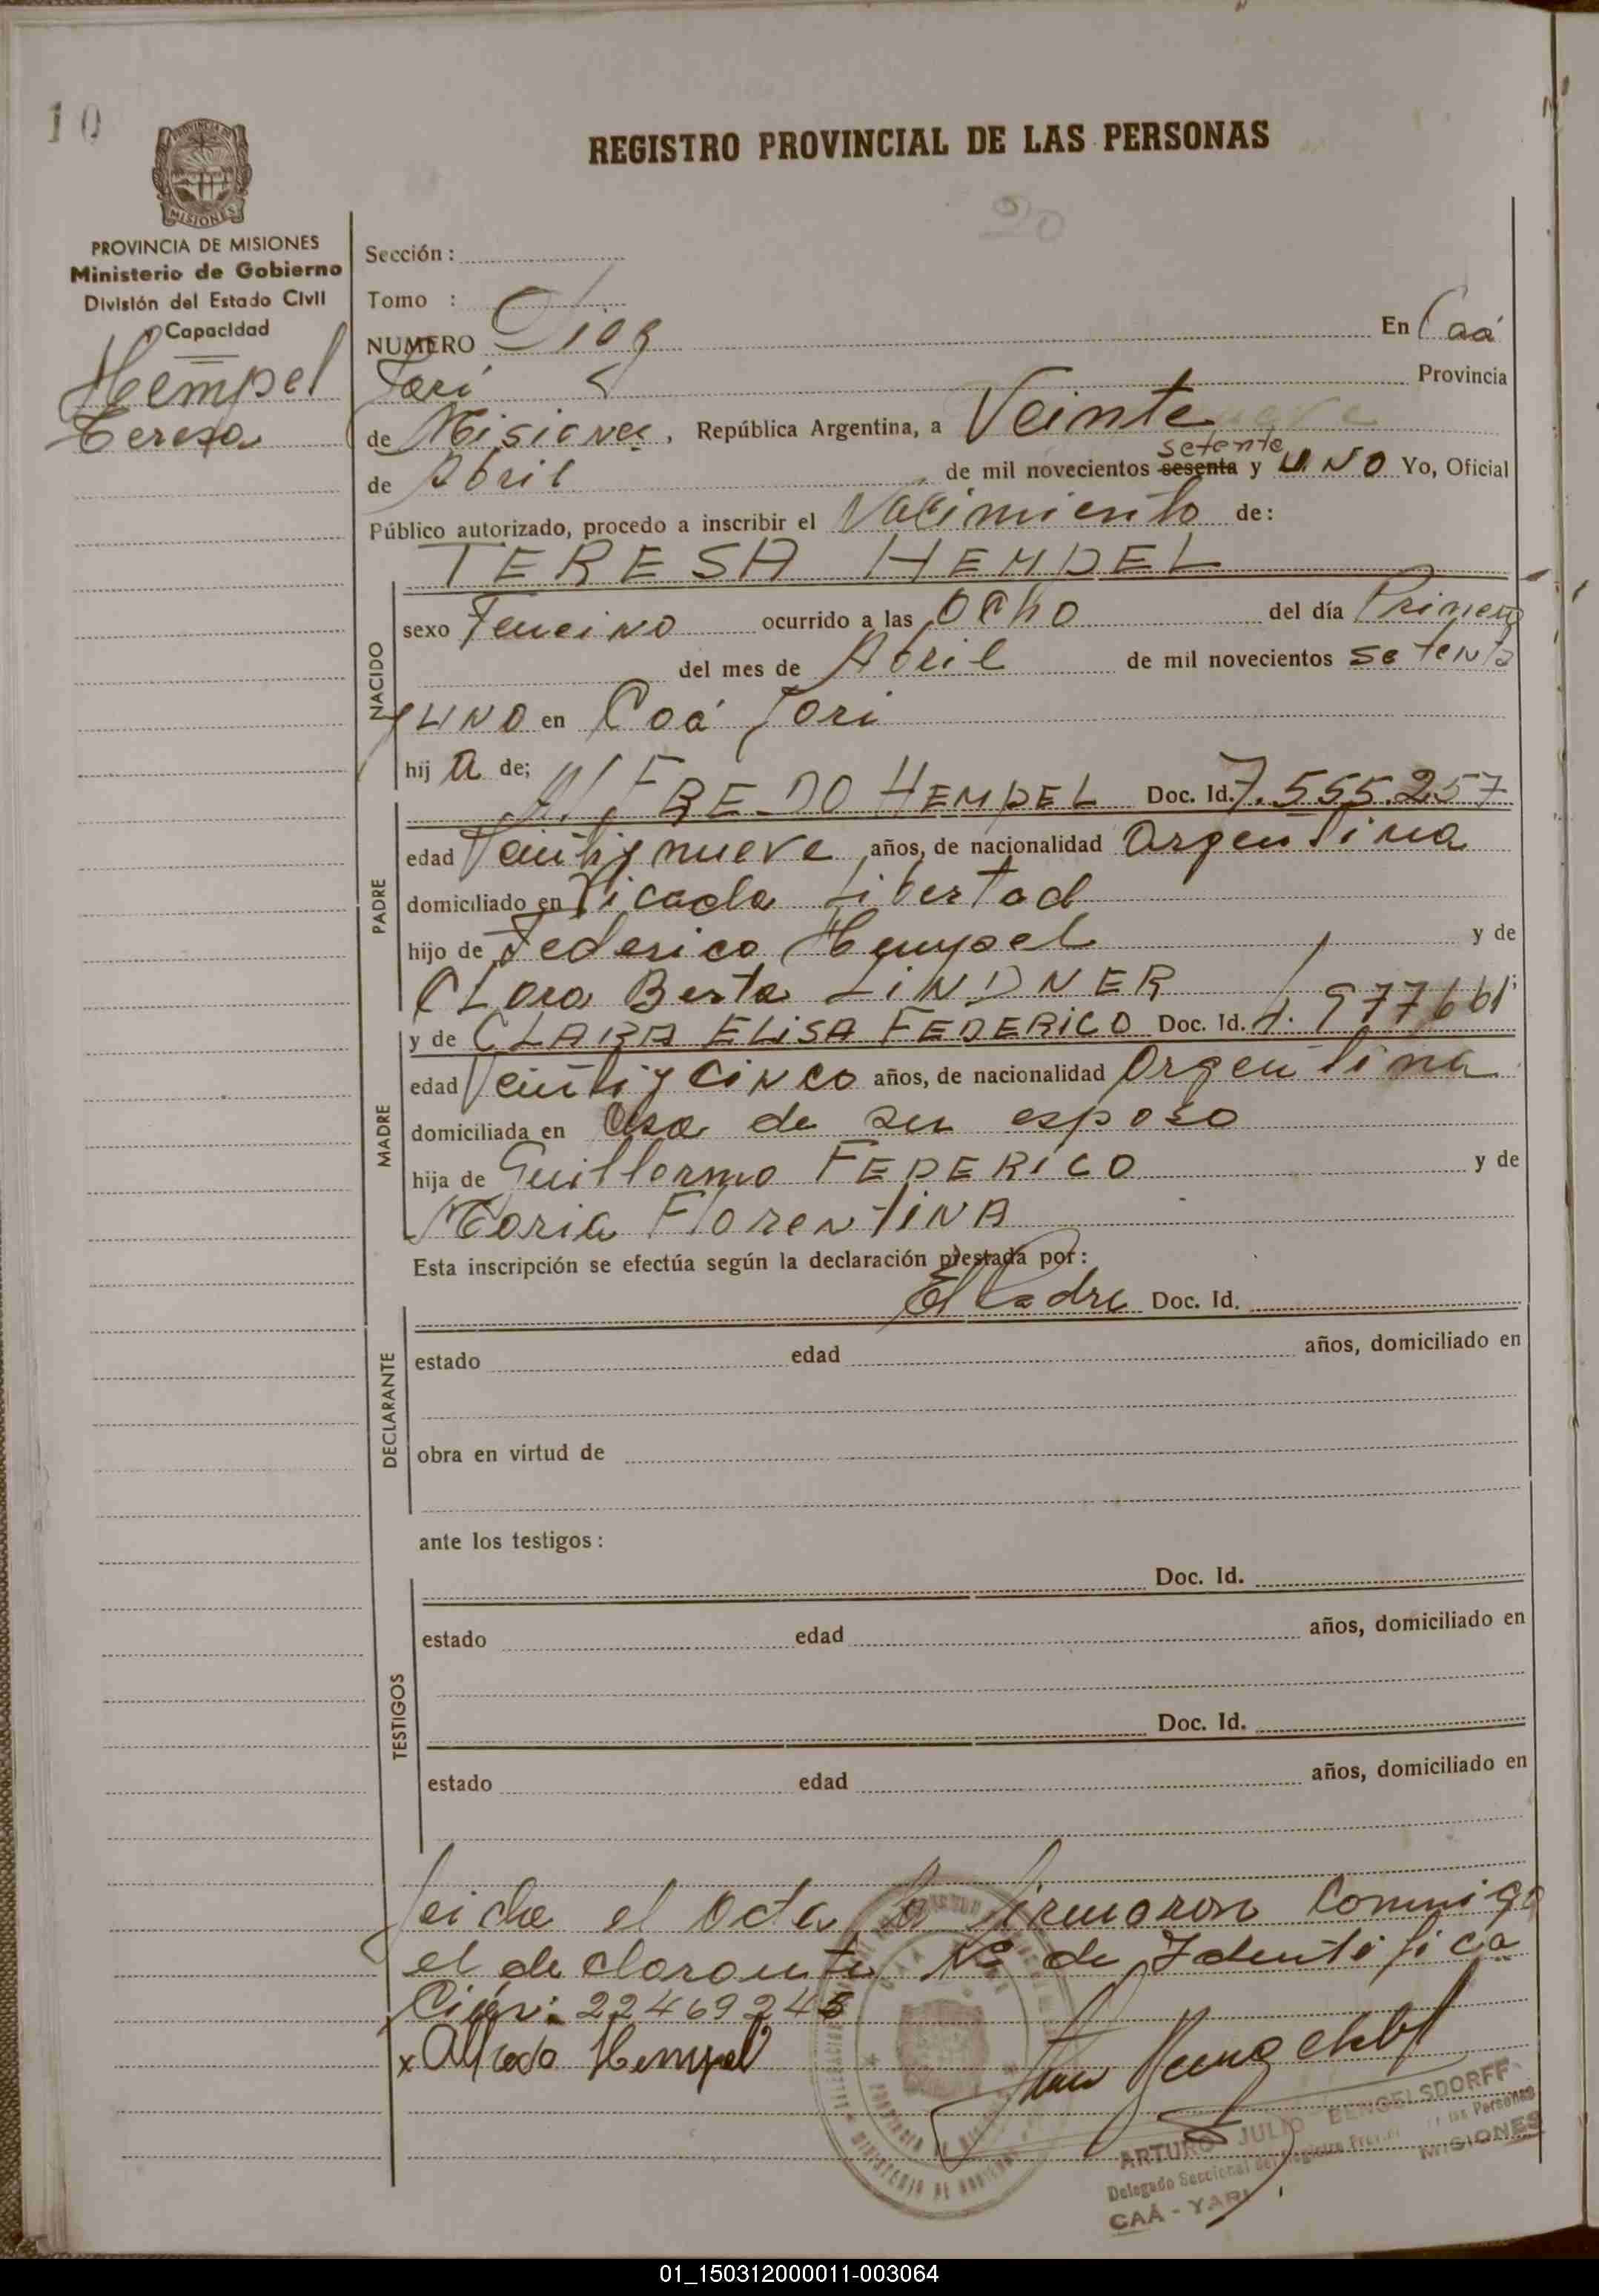 10
REGISTRO PROVINCIAL DE LAS PERSONAS
20
PROVINCIA DE
MISIONES
PROVINCIA DE MISIONES
Ministerio de Gobierno
División del Estado Civil
y Capacidad
Hempel
Teresa
Sección :
Tomo :
NUMERO Diez En Caá
Yarí Provincia
de Misiones, República Argentina, a Veinte
setenta
de Abril de mil novecientos sesenta y UNO Yo, Oficial
Público autorizado, procedo a inscribir el Nacimiento de:
TERESA HEMPEL
NACIDO
sexo Femeino ocurrido a las Ocho del día Primero
del mes de Abril de mil novecientos setenta
y UNO en Caá Yari
hij a de;
PADRE
ALFREDO HEMPEL Doc. Id. 7.555.257
edad Veinti y nueve años, de nacionalidad Argentina
domiciliado en Picada Libertad
hijo de Federico Hempel y de
CLara Berta LINDNER
MADRE
y de CLARA ELISA FEDERICO Doc. Id. 4.977661
edad Veinti y CINCO años, de nacionalidad Argentina
domiciliada en Casa de su esposo
hija de Guillermo FEDERICO y de
Maria FlorentINA
Esta inscripción se efectúa según la declaración prestada por :
DECLARANTE
El Padre Doc. Id.
estado edad años, domiciliado en
obra en virtud de
ante los testigos :
TESTIGOS
Doc. Id.
estado edad años, domiciliado en
Doc. Id.
estado edad años, domiciliado en
Leida el acta la firmaron conmigo
el declarante Nº de Identifica
Ción: 22469245
x Alfredo Hempel
ARTURO JULIO BENGELSDORFF
Delegado Seccional del Registro Prov. de las Personas
CAÁ - YARI MISIONES
01_150312000011-003064